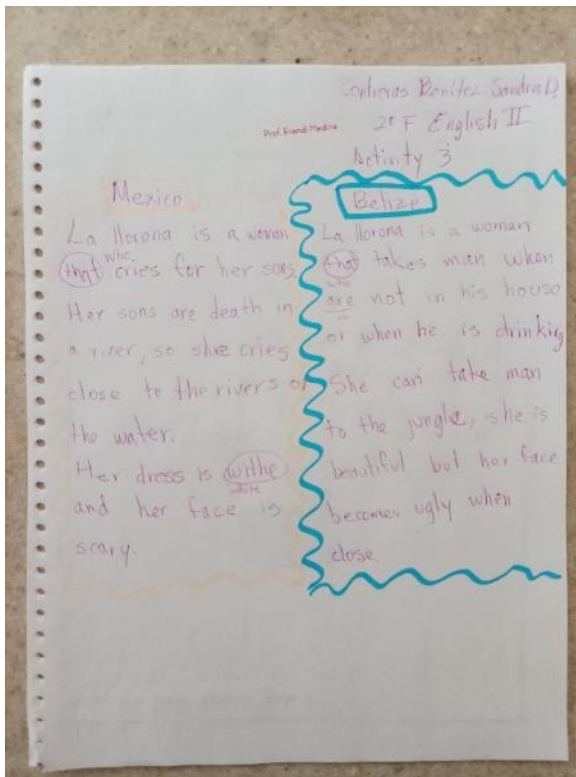 Contreras Benítez Sandra D.
Prof. Erandi Medina
2º F English II
Activity 3
Mexico
La llorona is a woman
who
that cries for her sons
Her sons are death in
a river, so she cries
close to the rivers or
the water.
Her dress is withe
white
and her face is
scary.
Belize
La llorona is a woman
that takes man when
who
are not in his house
or when he is drinking
She can take man
to the jungle, she is
beautiful but her face
becomes ugly when
close.